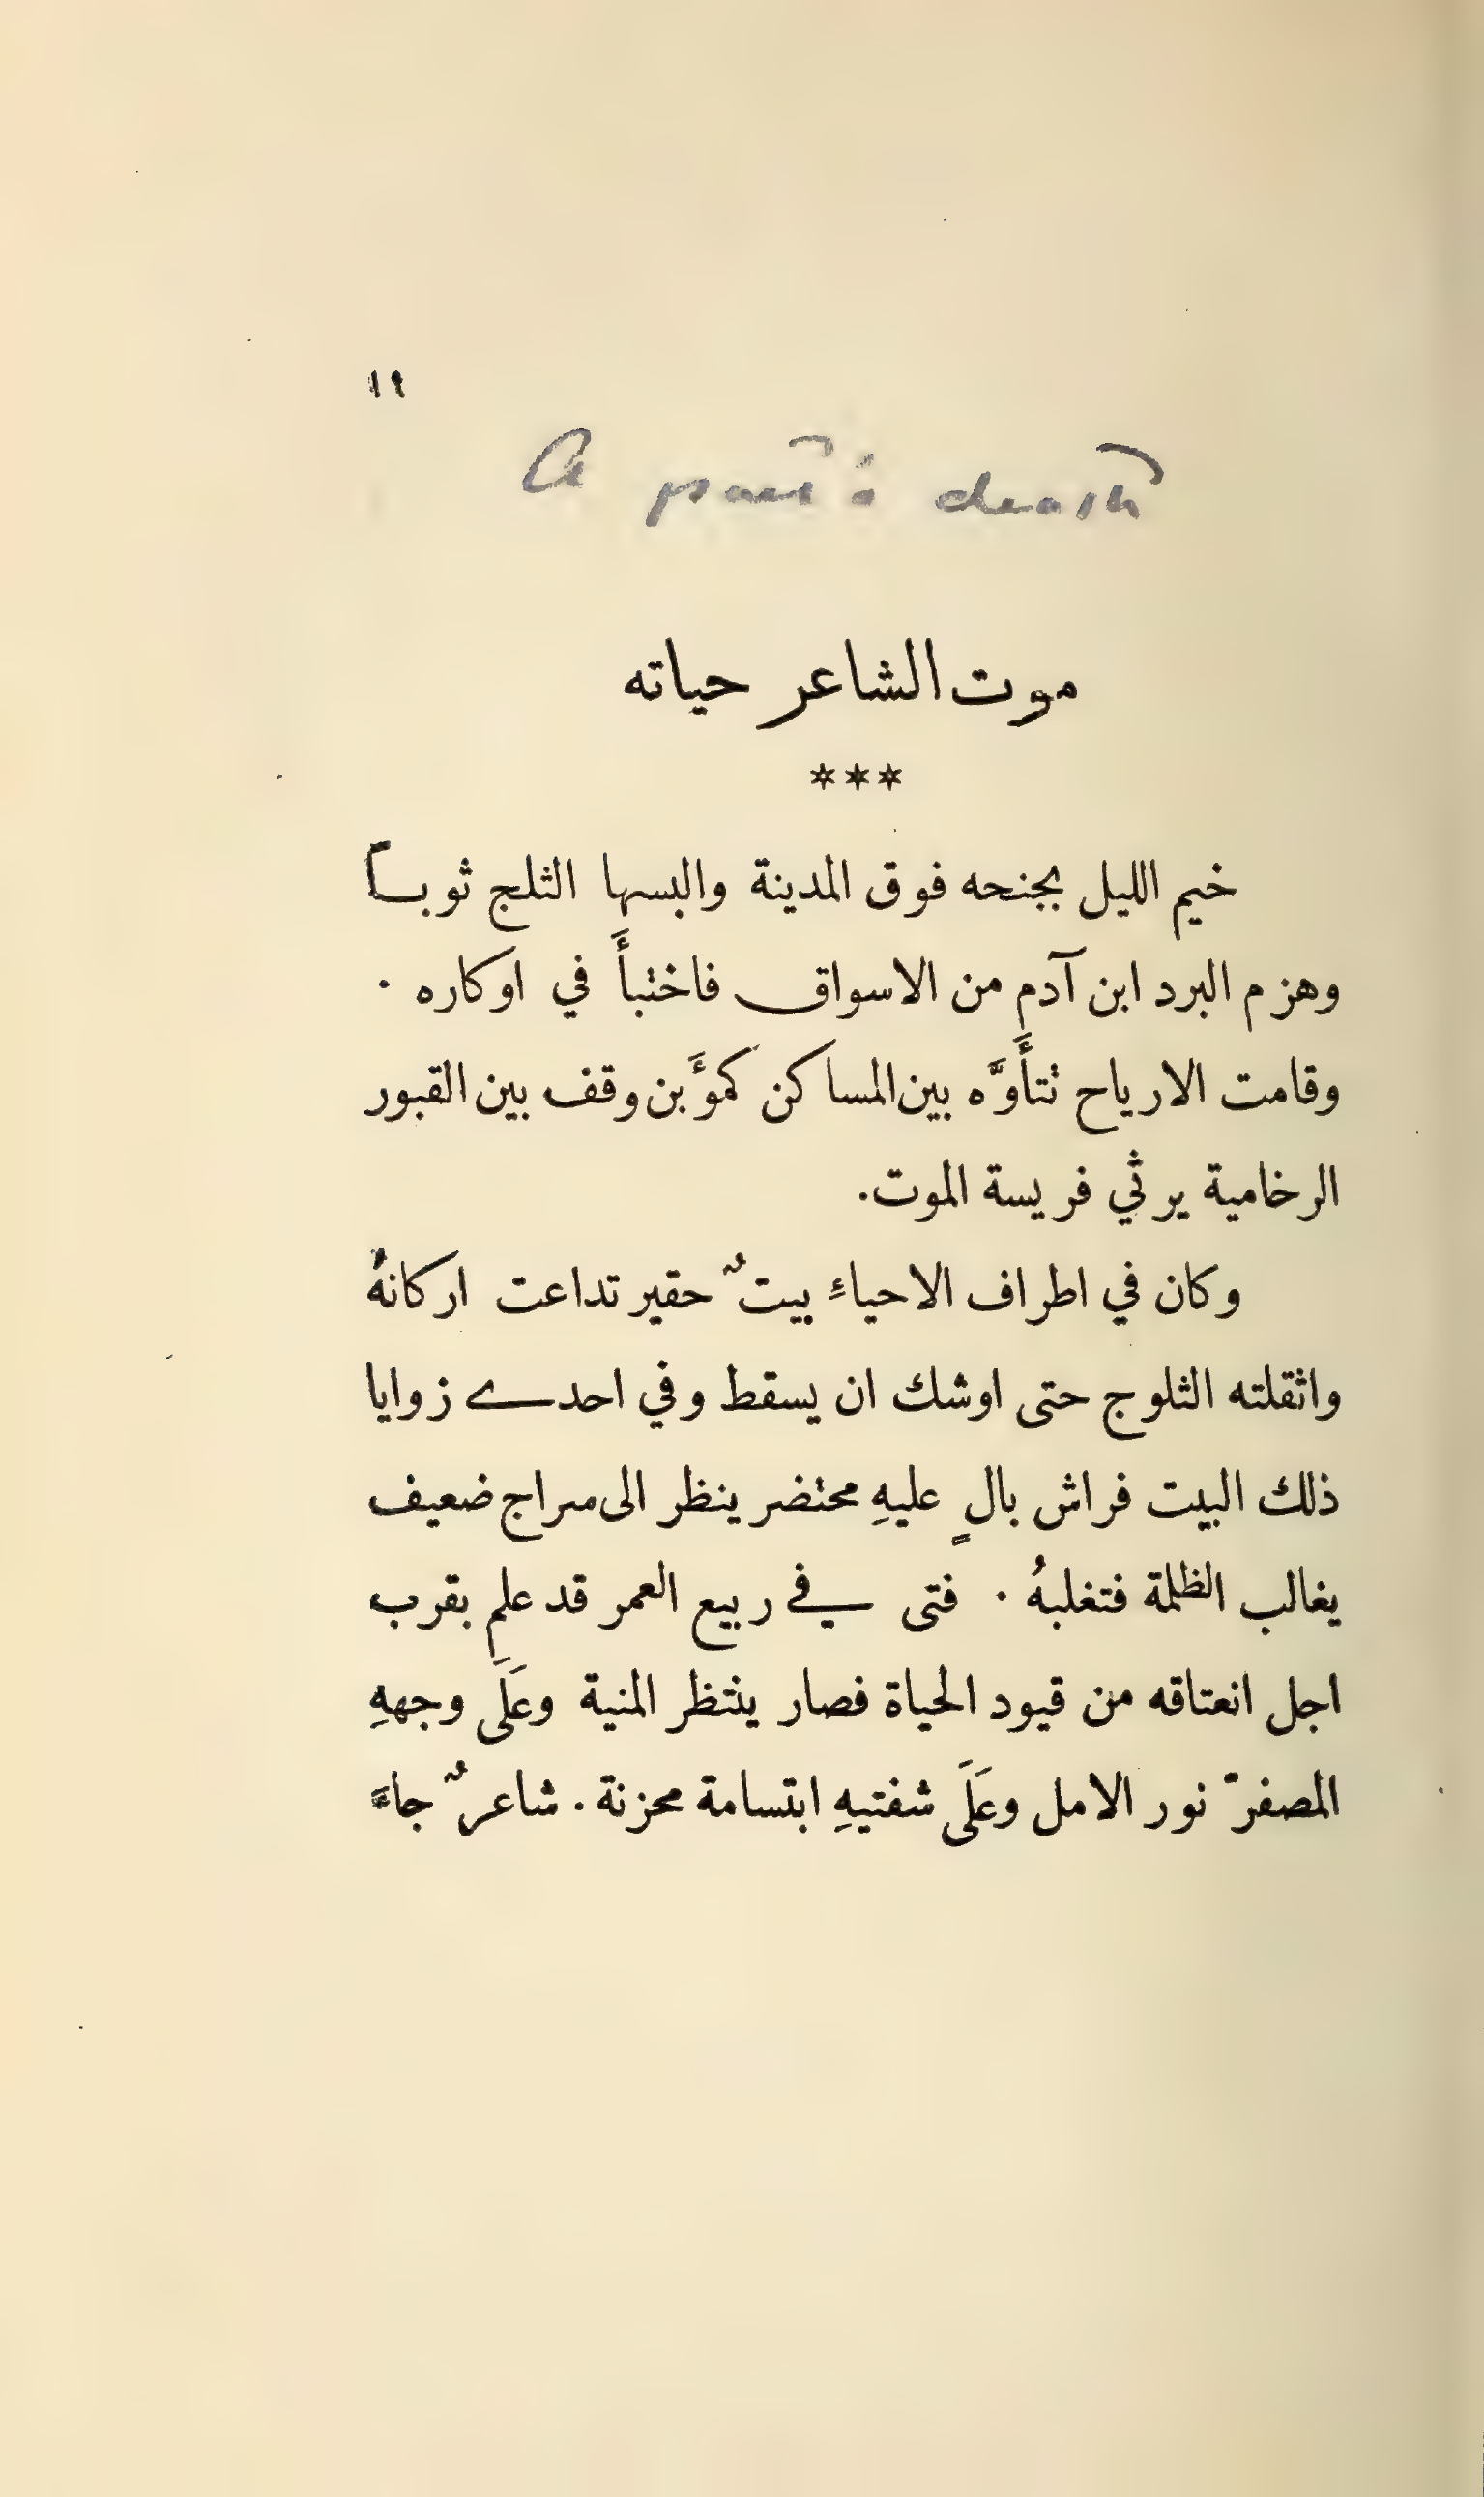 ١٩
A poet's death
موت الشاعر حياته
***
خيم الليل بجنحه فوق المدينة والبسها الثلج ثوباً
وهزم البرد ابن آدم من الاسواق فاختبأَ في اوكاره ·
وقامت الارياح تتأَوَّه بين المساكن كموءَبن وقف بين القبور
الرخامية يرثي فريسة الموت.
وكان في اطراف الاحياءِ بيتٌ حقير تداعت اركانهُ
واثقلته الثلوج حتى اوشك ان يسقط وفي احدى زوايا
ذلك البيت فراش بالٍ عليهِ محتضر ينظر الى سراج ضعيف
يغالب الظلمة فتغلبهُ · فتى في ربيع العمر قد علم بقرب
اجل انعتاقه من قيود الحياة فصار ينتظر المنية وعَلَى وجههِ
المصفرّ نور الامل وعَلَى شفتيهِ ابتسامة محزنة. شاعرٌ جاءَ